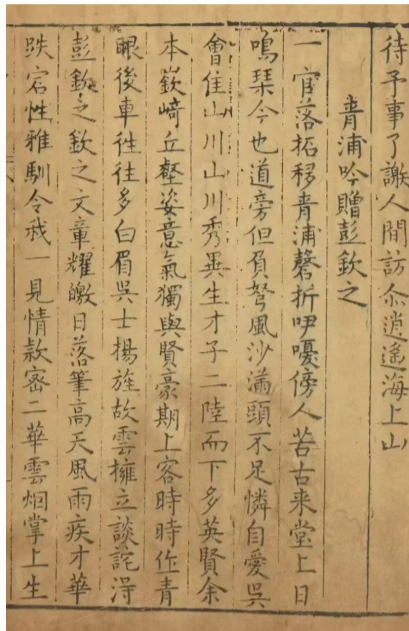 待予事了謝人間訪尒逍遙海上山
青浦吟贈彭欽之
一官落拓移青浦磬折吚嚘傍人苦古來堂上日
鳴琹今也道旁但負弩風沙滿頭不足憐自愛吳
會住山川山川秀異生才子二陸而下多英賢余
本嶔﨑丘壑姿意氣獨與賢豪期上客時時作青
眼後車徃往多白眉吳士揚旌故雲擁立談詫淂
彭欽之欽之文章耀皦日落筆髙天風雨疾才華
跌宕性雅馴令我一見情款密二華雲烟掌上生